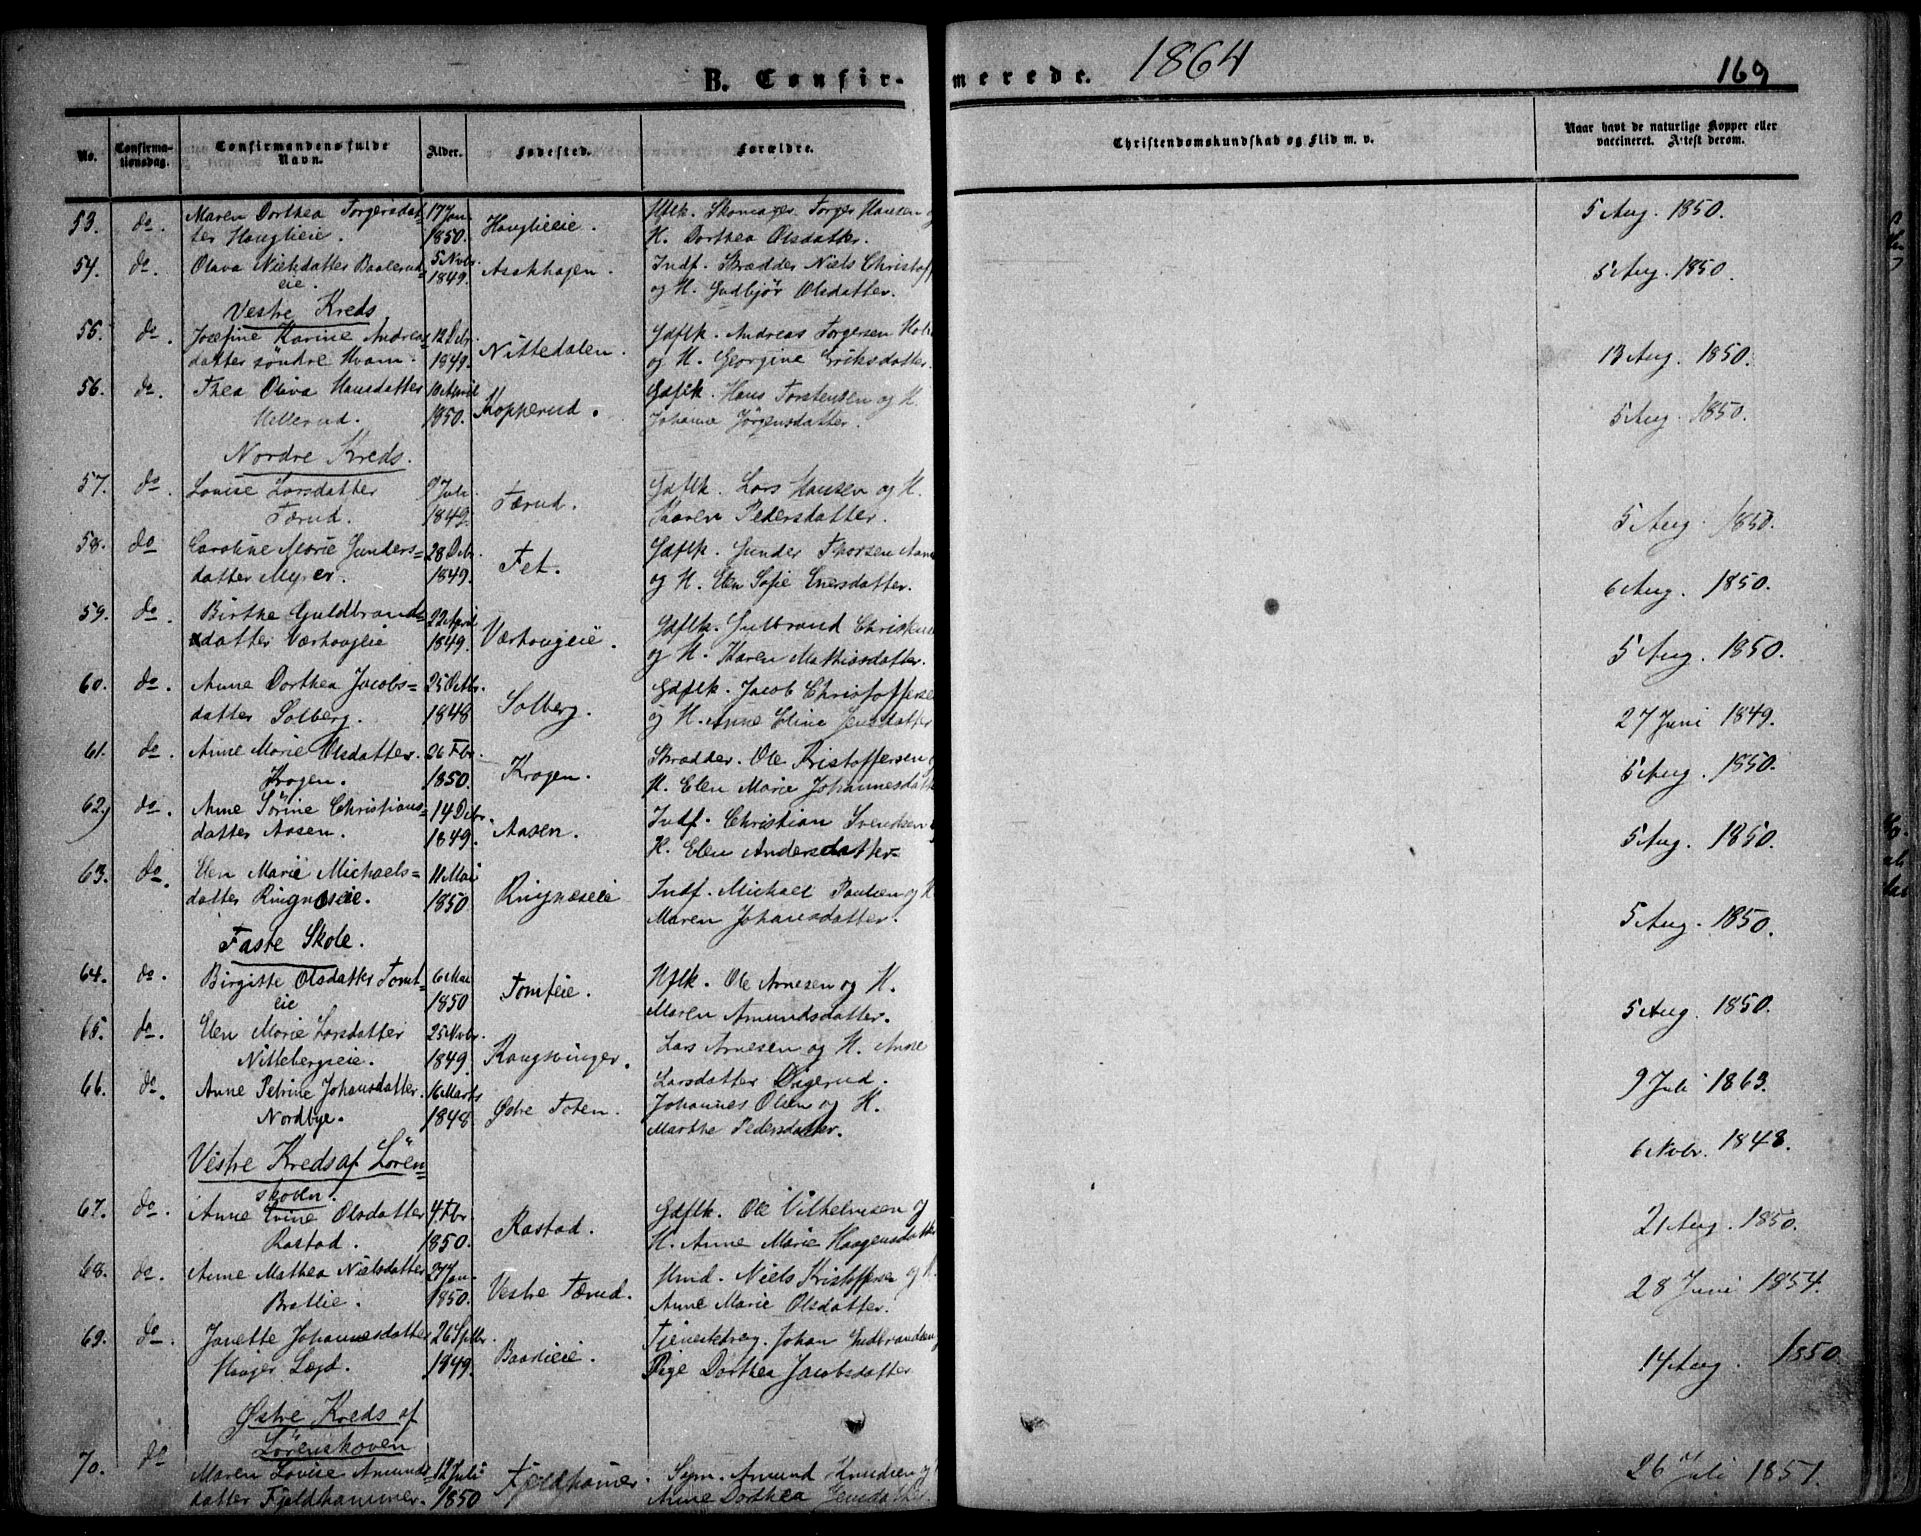 B. Confir- merede. 1864 169
No. Confirma- Confirmandens fulde Alder. Fødested. Forældre. Christendomskundskab og Flid m. v. Naar havt de naturlige Kopper eller
tionsdag. Navn. vaccineret. Attest derom.
53. do. Maren Dorthea Torgersdat- 17 Jan. Hauglieie. Hflk. Skomager Torger Hansen og 5 Aug. 1850.
ter Hauglieie. 1850. H. Dorthea Olsdatter.
54. do. Olava Nielsdatter Baalerud- 5 Nvbr. Asakhagen. Indf. Skrædder Niels Christoff 5 Aug. 1850.
eie. 1849. og H. Gudbjør Olsdatter.
Vestre Kreds
55. do. Josefine Karine Andreas- 12 Dcbr. Nittedalen. Gdflk. Andreas Torgersen 13 Aug. 1850.
datter søndre Hvam. 1849. og H. Georgine Eriksdatter.
56. do. Thea Oliva Hansdatter 10 April Kopperud. Gdflk. Hans Torstensen og H. 5 Aug. 1850.
Hellerud. 1850. Johanne Jørgensdatter.
Nordre Kreds.
57. do. Lovise Larsdatter 9 Juli. Tærud. Gdflk. Lars Hansen og H. 5 Aug. 1850.
Tærud. 1849. Karen Pedersdatter.
58. do Caroline Marie Gunders- 28 Dcbr. Fet. Gdflk. Gunder Thorsen 6 Aug. 1850.
datter Myrer. 1849. og H. Elen Sofie Enersdatter.
59. do. Birthe Guldbrands- 22 April Værhougeie. Gdflk. Gulbrand 5 Aug. 1850.
datter Værhougeie 1849. og H. Karen Mathiasdatter.
60. do. Anne Dorthea Jacobs- 25 Octbr. Solberg. Gdflk. Jacob Christofferse 27 Juni 1849.
datter Solberg. 1848 og H. Anne Eline Jensdatter
61. do. Anne Marie Olsdatter. 26 Fbr. Krogen. Skrædder. Ole Kristoffersen 5 Aug. 1850.
Krogen. 1850. H. Elen Marie Johannesdat
62. do. Anne Sørine Christians- 14 Dcbr. Aasen. Indf. Christian Svendsen 5 Aug. 1850.
datter Aasen. 1849. H. Elen Andersdatter
63. do. Elen Marie Michaels- 11 Mai Ringnæseie Indf. Michael Paulsen og H 5 Aug. 1850.
datter Ringnæseie. 1850 Maren Johansdatter.
Faste Skole.
64. do. Birgitte Olsdatter Tomt 6 Mai Tomteie. Hflk. Ole Arnesen og H. 5 Aug. 1850.
eie 1850 Maren Amundsdatter.
65. do. Elen Marie Larsdatter 25 Nvbr. Kongsvinger. Lars Arnesen og H. Anne 9 Juli 1863.
Nittebergseie. 1849. Larsdatter Ørgerud.
66. do. Anne Petrine Johansdatter. 16 Marts Østre Toten. Johannes Olsen og H. 6 Nvbr. 1848.
Nordbye. 1848 Marthe Pedersdatter.
Vestre Kreds af Lören-
skoven.
67. do. Anne Evine Olsdatter 4 Fbr. Rastad. Gdflk. Ole Vilhelmsen og 21 Aug. 1850.
Rastad. 1850. H. Anne Marie Haagensdatt
68. do. Anne Mathea Nielsdatter 27 Jan. Vestre Tærud. Niels Kristoffersen og H. 28 Juni 1854.
Bratlie. 1850. Anne Marie Olsdatter.
69. do. Janette Johannesdatter 26 Sptbr. Baaslieie. Tjenestedreg. Johan Gudbrandsen 14 Aug. 1850
1849. Pige Dorthea Jacobsdatter
Østre Kreds af
Lörenskoven
70. do Maren Lovise Amunds- 12 Juli Fjeldhamer. Amund Knudsen og 26 Juli 1851.
datter Fjeldhammer. 1850 Anne Dorthea Jensdatter